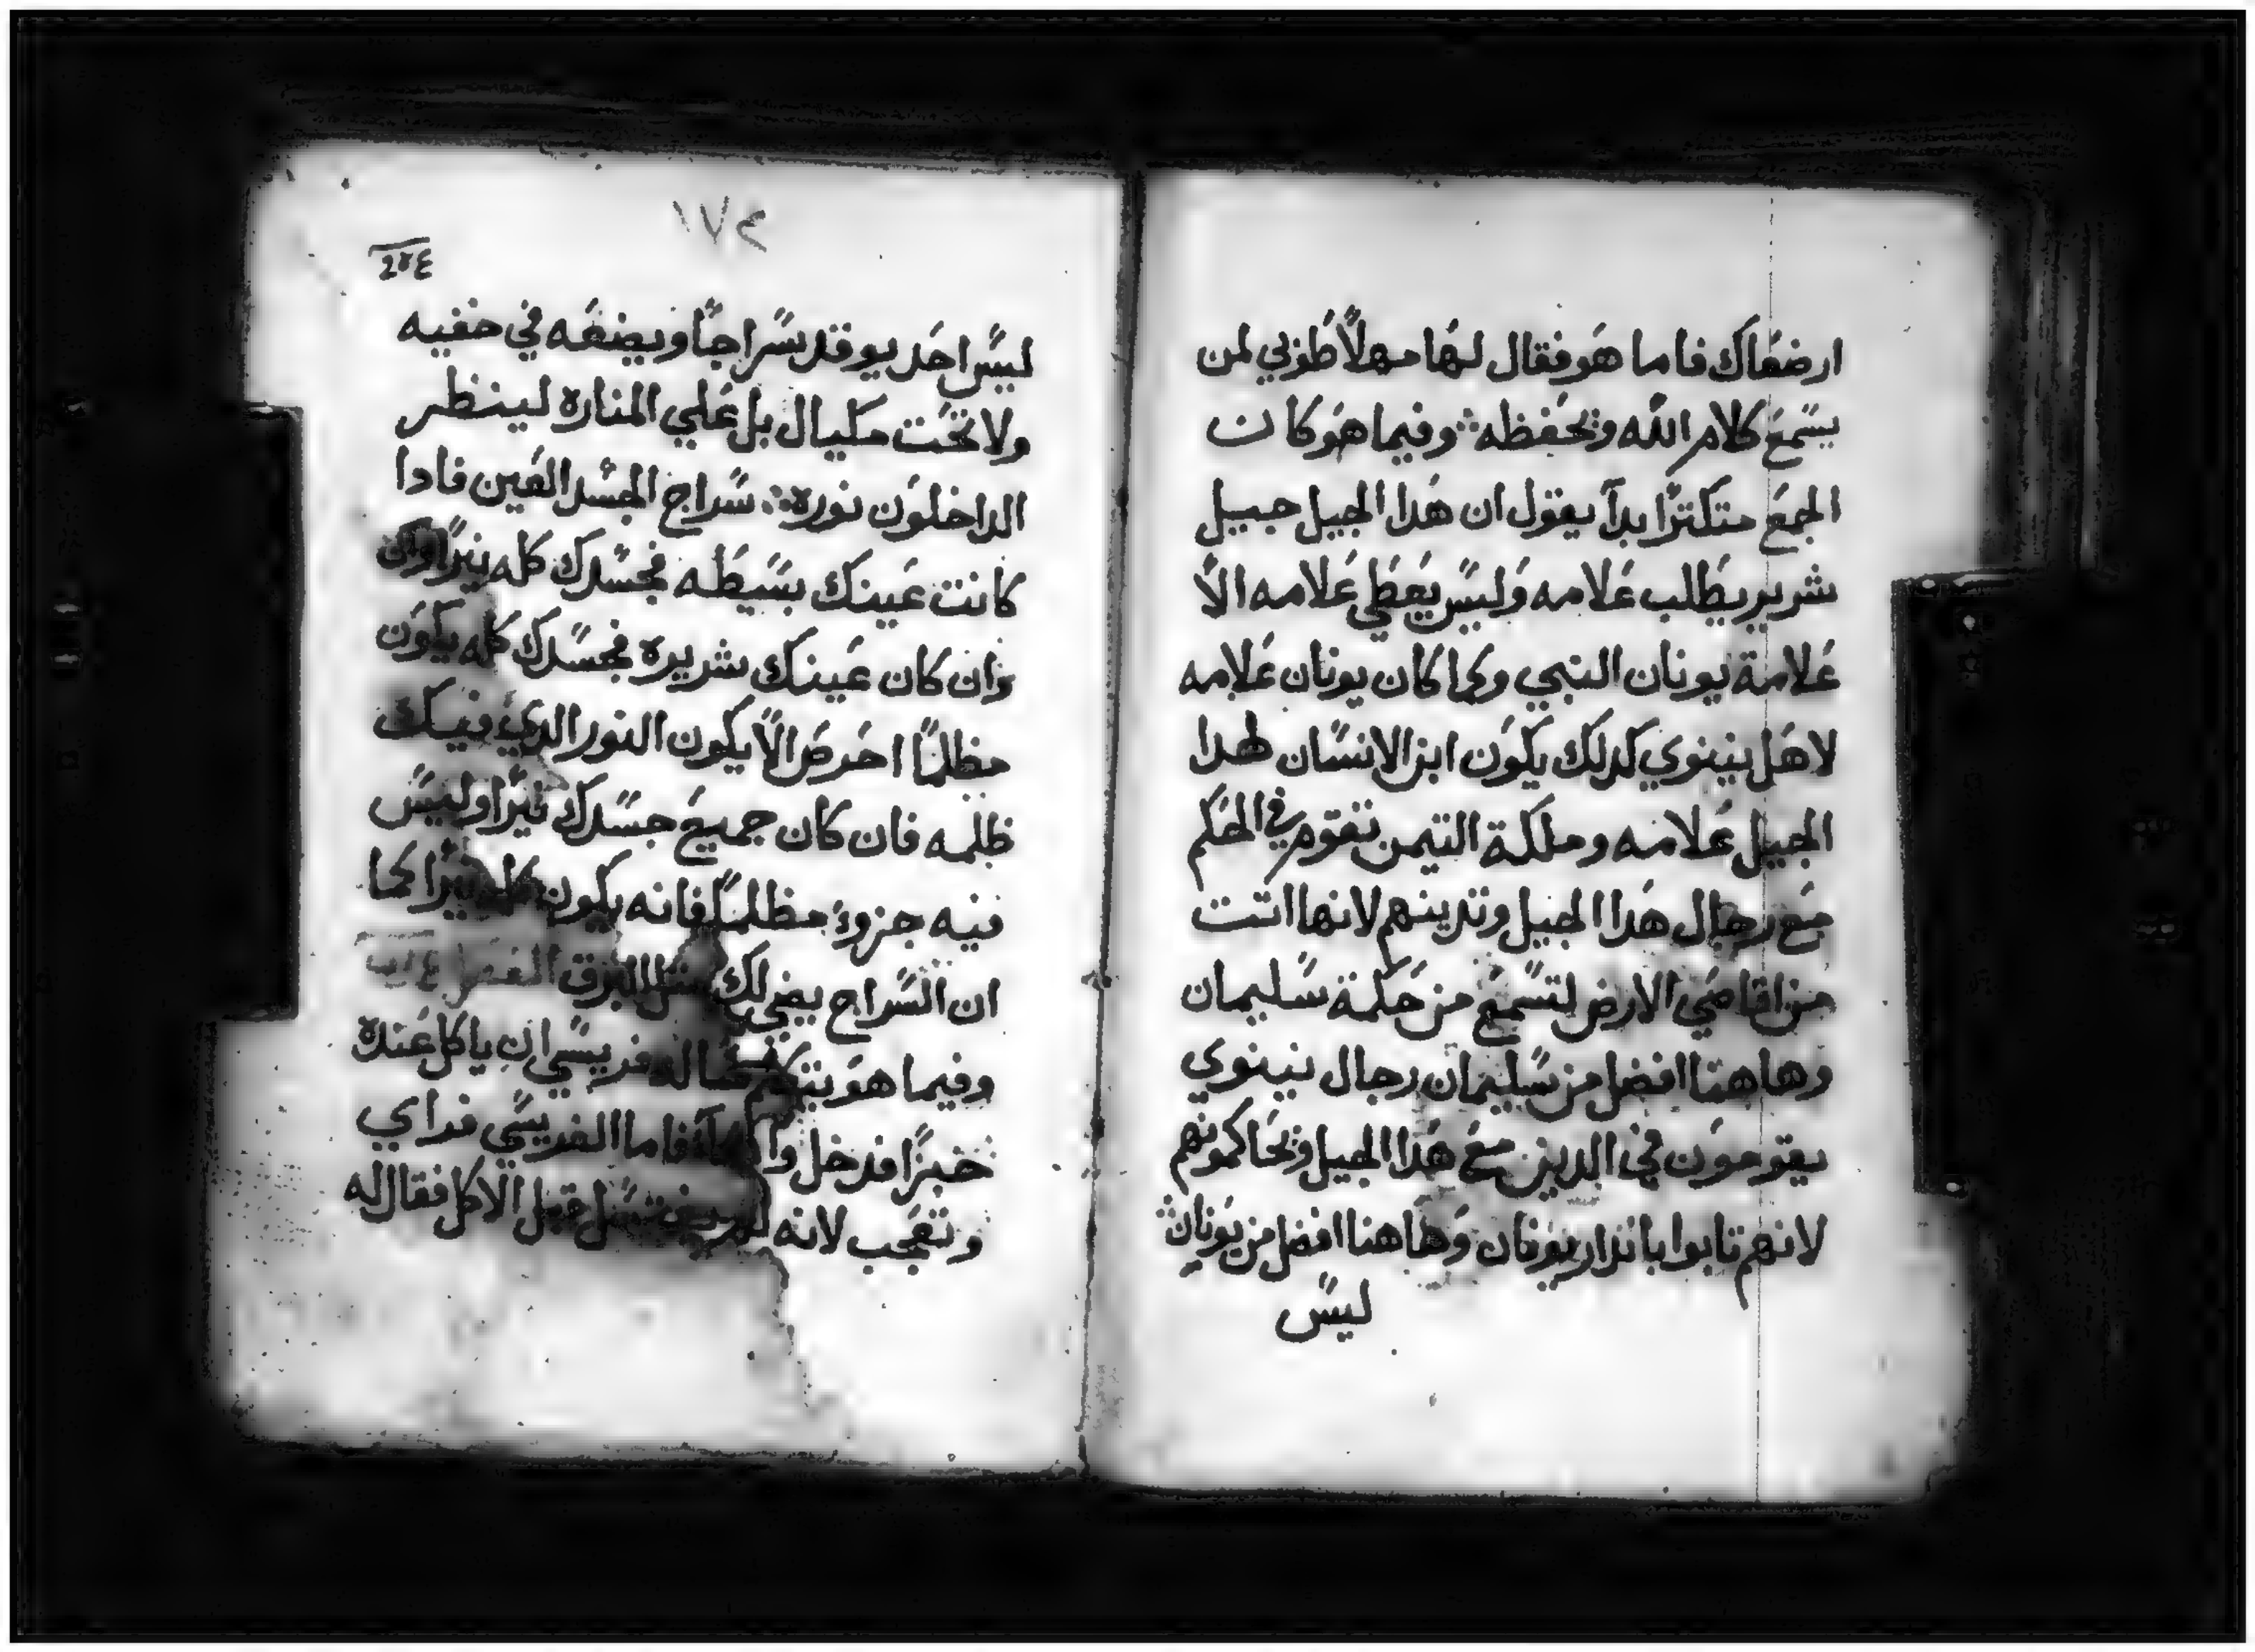 ارضعاك فاما هو فقال لها مهلاً طوبي لمن
يسمع كلام الله ويحفظه ۞ وفيما هو كان
الجمع متكثراً بدأ يقول ان هدا الجيل جيل
شرير يطلب علامه وليس يعطي علامه الا
علامة يونان النبي وكما كان يونان علامه
لاهل نينوي كدلك يكون ابن الانسان لهدا
الجيل علامه وملكة التيمن تقوم في الحكم
مع رجال هدا الجيل وتدينهم لانها اتت
من اقاصي الارض لتسمع من حكمة سليمان
وهاهنا افضل من سليمان رجال نينوي
يقومون في الدين مع هدا الجيل ويحاكمونهم
لانهم تابوا باندار يونان وهاهنا افضل من يونان
ليس
١٧٤
ليس احد يوقد سراجاً ويضعه في خفيه
ولا تحت مكيال بل علي المناره لينظر
الداخلون نوره ۞ سراج الجسد العين فادا
كانت عينك بسيطه فجسدك كله نيراً
وان كان عينك شريره فجسدك كله يكون
مظلماً احرص الا يكون النور الدي فيك
ظلمه فان كان جميع جسدك نيراً وليس
فيه جزوء مظلماً فانه يكون كله نيراً كما
ان السراج يضي لك مثل البرق الفصل
وفيما هو يتكلم ساله فريسي ان ياكل عنده
خبزاً فدخل واتكاء فاما الفريسي فراي
وتعجب لانه لم يغتسل قبل الاكل فقال له